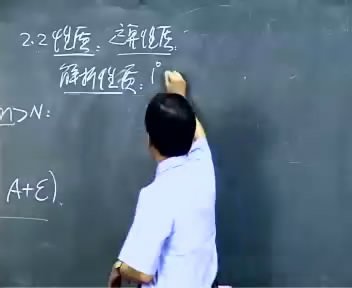 2.2 性质: 运算性质:
解析性质: 1°
n>N:
A+ε).